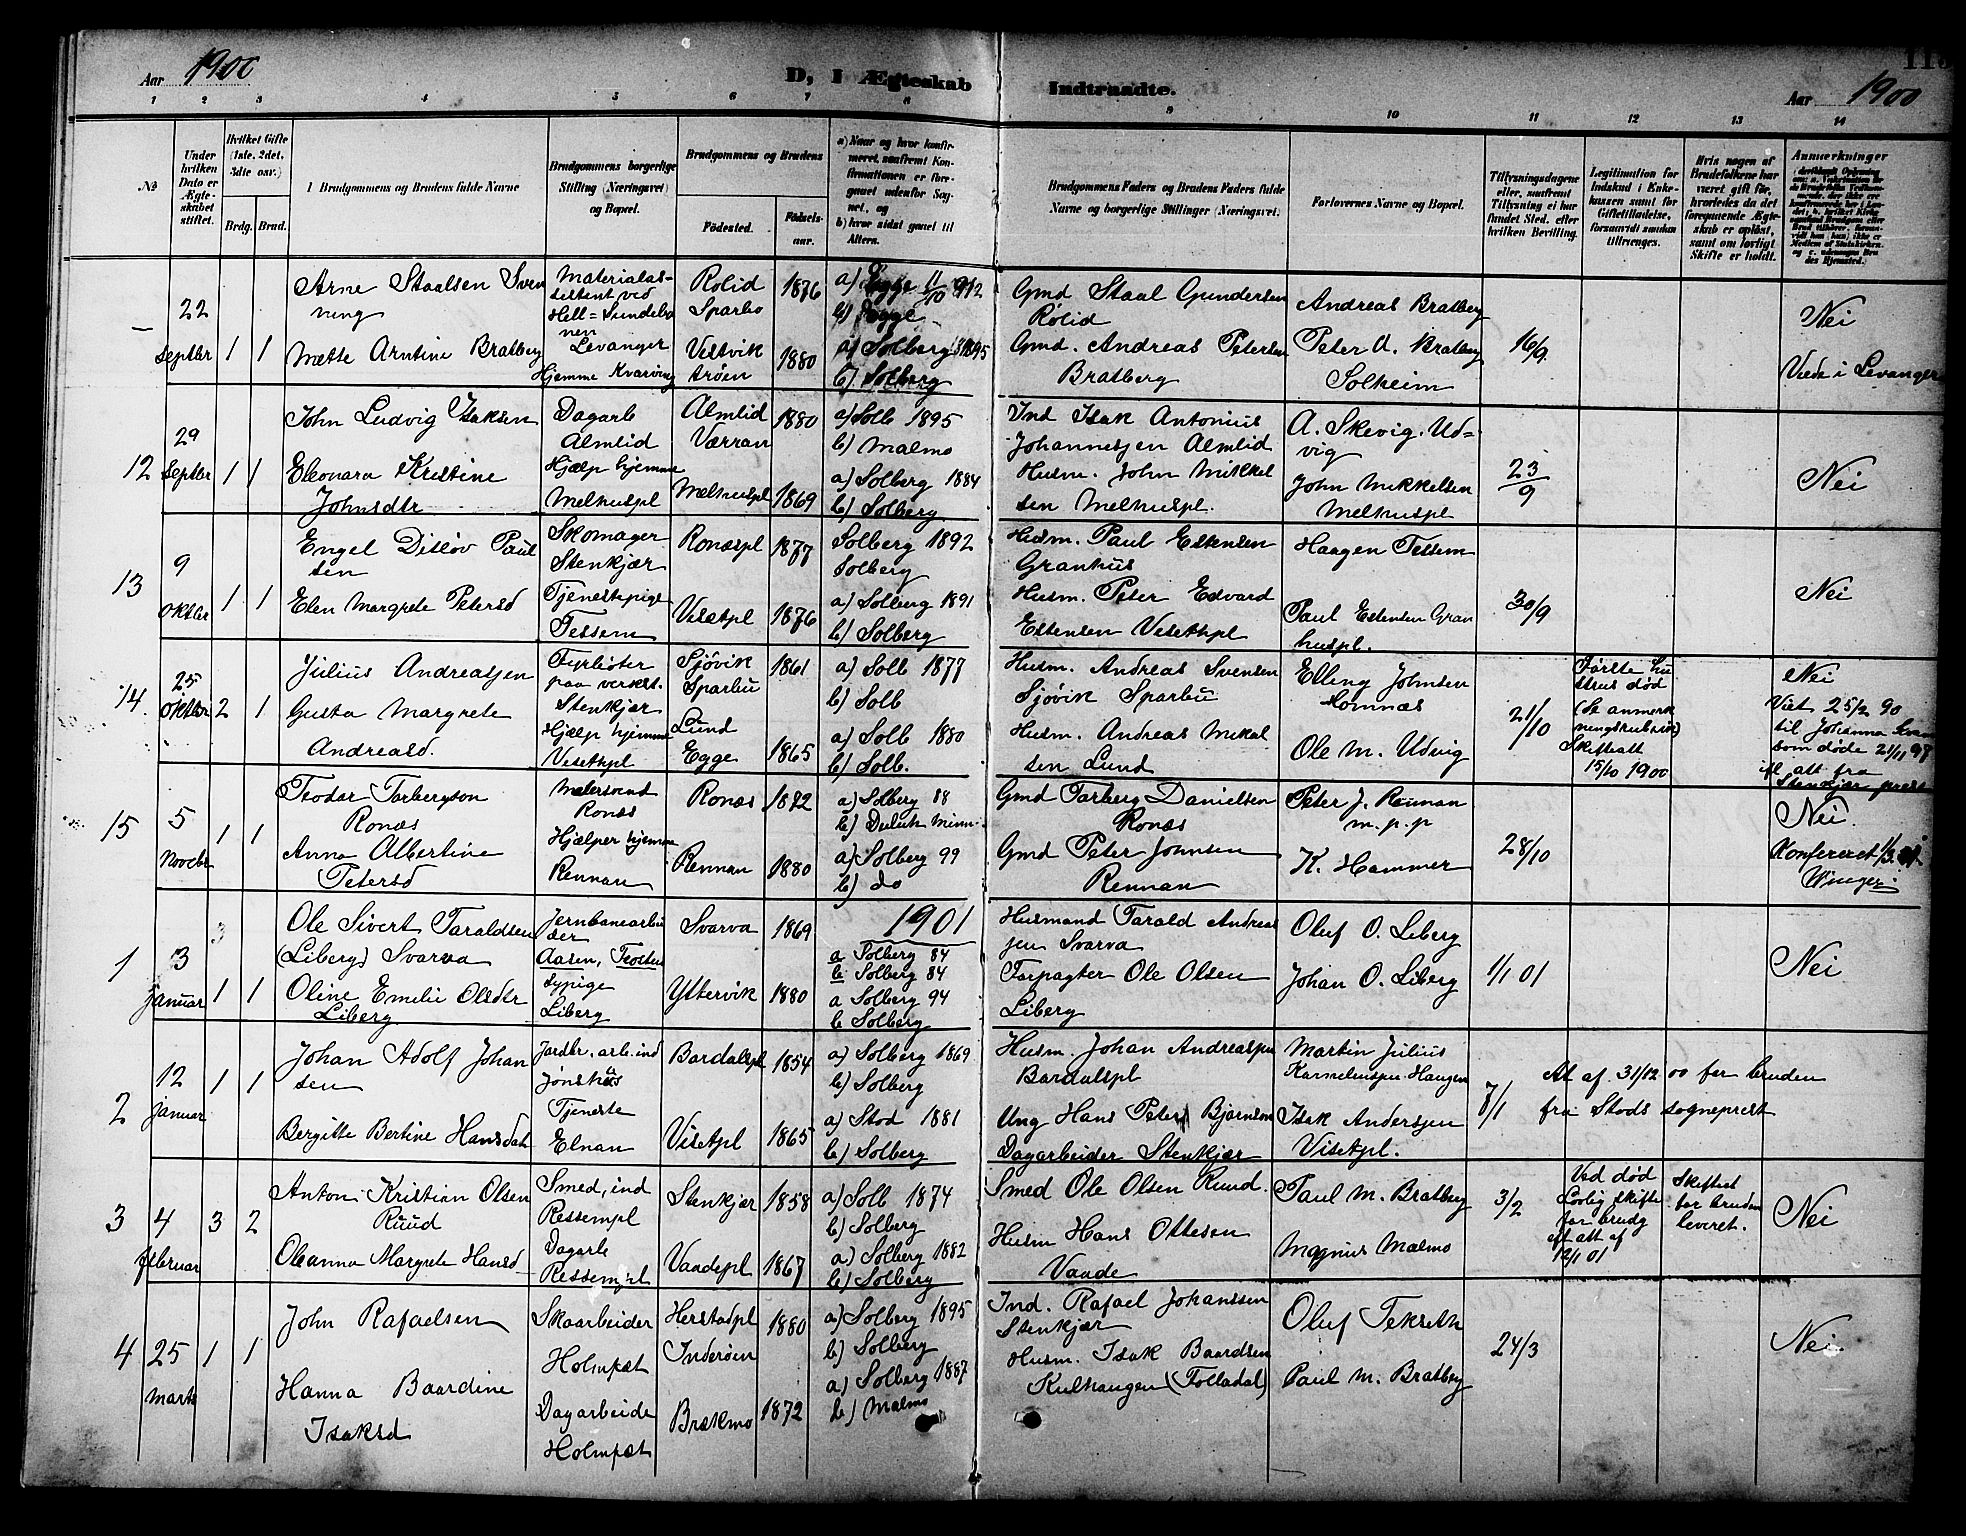 Aar 1900
D, I Ægteskab Indtraadte.
Aar 1900
1 2 3 4 5 6 7 8 9 10 11 12 13 14
№
Under hvilken Dato er Ægteskabet stiftet.
Hvilket Gifte (1ste, 2det, 3die osv.)
Brdg. Brud.
Brudgommens og Brudens fulde Navne
Brudgommens borgerlige Stilling (Næringsvei) og Bopæl.
Brudgommens og Brudens
Fødested. Fødselsaar.
a) Naar og hvor konfirmeret, saafremt Konfirmationen er foregaaet udenfor Sognet, og
b) hvor sidst gaaet til Alters.
Brudgommens Faders og Brudens Faders fulde Navne og borgerlige Stillinger (Næringsvei.
Forlovernes Navne og Bopæl.
Tillysningsdagene eller, saafremt Tillysning ei har fundet Sted, efter hvilken Bevilling.
Legitimation for Indskud i Enkekassen samt for Giftetilladelse, forsaavidt saadan tiltrænges.
Hvis nogen af Brudefolkene har været gift før, hvorledes da det foregaaende Ægteskab er opløst, samt om lovligt Skifte er holdt.
Anmærkninger
22 Septbr 1 1
Arne Staalsen Svenning
Materialassistent ved Hell-Sundebanen Levanger
Rolid Sparbo 1876
a) Egge 11/10 912
b) Egge
Gmd Staal Gundersen Rolid
Andreas Bratberg
16/9.
Nei
Mette Arntine Bratberg
Hjemme Kvarving
Vestvik trøen 1880
a) Solberg 1895
b) Solberg
Gmd. Andreas Petersen Bratberg
Peter A. Bratberg Solheim
Viede i Levanger
12 29 Septbr 1 1
John Ludvig Isaksen
Dagarb Almlid
Almlid Værran 1880
a) Solb 1895
b) Malmo
Ind Isak Antonius Johannesjen Almlid
A. Skevig. Udvig
23/9
Nei
Eleonara Kristine Johnsdtr
Hjælp hjemme Melhuspl
Melhuspl 1869
a) Solberg 1884
b) Solberg
Husm. John Mikkelsen Melhuspl.
John Mikkelsen Melhuspl
13 9 Oktbr 1 1
Engel Ditløv Paulsen
Skomager Stenkjær
Ronæspl 1877
Solberg 1892
Solberg
Husm. Paul Estensen Granhus
Haagen Tessem
30/9
Nei
Elen Margrete Petersd
Tjenestepige Tessem
Visetpl 1876
a) Solberg 1891
b) Solberg
Husm. Peter Edvard Estensen Visethpl
Paul Estensen Granhuspl.
14 25 Oktbr 2 1
Julius Andreasjen
Fyrbøter paa verkst. Stenkjær
Sjøvik Sparbu 1861
a) Solb 1877
b) Solb
Husm. Andreas Svensen Sjøvik Sparbu
Elling Johnsen Homnæs
21/10
Første hustrus død (Se anmerkningsrubrik) Skifteatt 15/10 1900
Nei
Viet 25/2 90 til Johanna som døde 21/11 97 fl. att fra Stenkjær prest
Gusta Margrete Andreasd.
Hjælp hjemme Visethpl
Lund Egge 1865
a) Solb 1880
b) Solb.
Husm. Andreas Mikalsen Lund
Ole M. Udvig
15 5 Novebr 1 1
Teodor Torbergson Ronæs
Ronæs
Ronæs 1872
a) Solberg 88
b) Duluth Minn.
Gmd Torberg Danielsen Ronæs
Peter J. Rennan m.p.p
28/10
Nei.
Konfereret
Anna Albertine Petersd
Hjælper hjemme Rennan
Rennan 1880
a) Solberg 99
b) do
Gmd Peter Johnsen Rennan
K. Hammer
1901
1 3 Januar 1 1
Ole Sivert Taraldsen (Liberg) Svarva
Jernbanearbeider Aasen,
Svarva 1869
a Solberg 84
b Solberg 84
Husmand Tarald Andreasjen Svarva
Oluf O. Liberg
1/1 01
Nei
Oline Emelie Olsdtr Liberg
Sypige Liberg
Yttervik 1880
a Solberg 94
b Solberg
Forpagter Ole Olsen Liberg
Johan O. Liberg
2 12 Januar 1 1
Johan Adolf Johansen
Jordbr. arb. ind Jønsaas
Bardalspl 1854
a) Solberg 1869
b) Solberg
Husm. Johan Andreasjen Bardalspl
Martin Julius Karneliusjen Haugen
7/1
At af 31/12 00 for bruden fra Stods sogneprest
Bergitte Bertine Hansdat
Tjeneste Elnan
Visetpl 1865
a) Stod 1881
b) Solberg
Ung Hans Peter Bjørnson Dagarbeider Stenkjær
Isak Andersjen Visetpl.
3 4 februar 3 2
Anton Kristian Olsen Ruud
Smed, ind Ressempl
Stenkjær 1858
a) Solb 1874
b) Solberg
Smed Ole Olsen Ruud.
Paul M. Bratberg
3/2
Ved død Lovlig skifte for brudg eft att af 12/1 01
Skifteat for bruden leveret.
Nei
Oleanna Margrete Hansd
Dagarb Ressempl
Vaadepl 1867
a) Solberg 1882
b) Solberg
Husm Hans Ottesen Vaade
Magnus Malmo
4 25 Marts 1 1
John Rafaelsen
Skoarbeider Holmpæt
Herstadpl Inderøen 1880
a) Solberg 1895
b) Solberg
Ind. Rafael Johanssen Stenkjær
Oluf Tekseth
24/3
Nei
Hanna Baardine Isaksd
Dagarbeide Holmpæt
Brækmo 1872
a) Solberg 1887
b) Malmo
Husm. Isak Baardsen Kulhaugen (Folladal)
Paul M. Bratberg